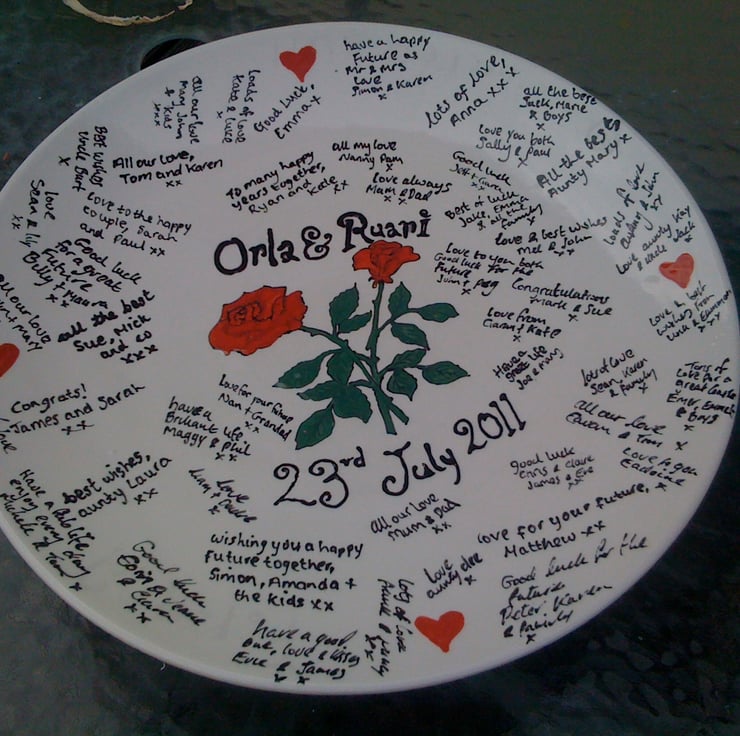 Orla & Ruari
23rd July 2011
have a happy
Future as
Mr & Mrs
love
Simon & Karen
x
Loads of love
Kate & Luce
Good Luck,
Emma x
all our love
Mary, John
& kids
xxx
lots of love,
Anna xx x
all the best
Jack, Marie
& Boys
x
love you both
Sally & Paul
x
All the best,
Aunty Mary x
Best wishes
Uncle Bert
x
All our love,
Tom and Karen
xx
To many happy
years together,
Ryan and Kate
xx
all my love
Nanny Pam
x
love always
Mam & Dad
x
Good luck
x
Best of luck
Jake, Emma
& all the
family
x
love & best wishes
Mel & John
x
loads of love
xx
Love aunty Kay
& uncle Jack
x
love
Sean & lily
xx
love to the happy
couple, Sarah
and Paul xx
Good luck
for a great
Future
Billy & Maura
xx
all our love
mary
x
all the best
Sue, Mick
and co
xxx
Love to you both
Good luck for the
Future
x
Congratulations
Mark & Sue
x
love from
Ciaran & Kate
x x
love & best
wishes from
xxx
Have a
great life
x
Congrats!
James and Sarah
x x
Love
love for your future
Nan & Grandad
xx
have a
Brilliant life,
Maggy & Phil
xx
lots of love
Sean, Karen
& family
x
Tons of
Love for a
great future
& boys
x
all our love
& Tom x
x
good luck
Chris & Claire
James & Eve
xx
best wishes,
aunty Laura
xx
love
x
All our love
Mum & Dad
xx
Have a fab life,
enjoy every day
x
Good luck
xx
wishing you a happy
future together,
Simon, Amanda +
the kids xx
love for your future,
Matthew xx
Love
aunty dee
x
Good luck for the
future
Peter, Karen
& family
x
lots of love
have a good
one, love & kisses
Evie & James
x